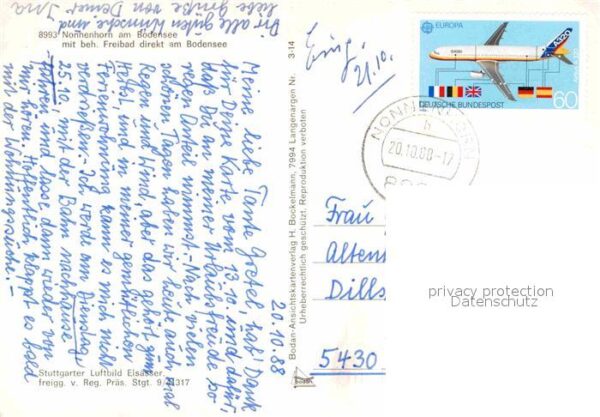 8993 Nonnenhorn am Bodensee
mit beh. Freibad direkt am Bodensee
20.10.88
Meine liebe Tante Gretel, hab Dank
für Deine Karte vom 13.10. und dafür,
daß Du an meiner Urlaubsfreude so
regen Anteil nimmst. Nach vielen
schönen Tagen haben wir heute auch mal
Regen und Wind, aber das gehört zum
Herbst, und in meiner gemütlichen
Ferienwohnung kann es mich nicht
verdrießen. Ich werde am Dienstag
25.10. mit der Bahn nachhause
fahren und lass dann wieder von
mir hören. Hoffentlich klappt es bald
mit der Wohnungssuche!
Dir alle guten Wünsche und
liebe Grüße von Deiner
Stuttgarter Luftbild Elsässer.
freigg. v. Reg. Präs. Stgt. 9/ 317
Bodan-Ansichtskartenverlag H. Bockelmann, 7994 Langenargen Nr. 3-14
Urheberrechtlich geschützt. Reproduktion verboten
Eing.
21.10.
EUROPA
A320
DEUTSCHE BUNDESPOST
60
NONNENHORN
b
20.10.88-17
Frau
Altens
Dills
5430
privacy protection
Datenschutz